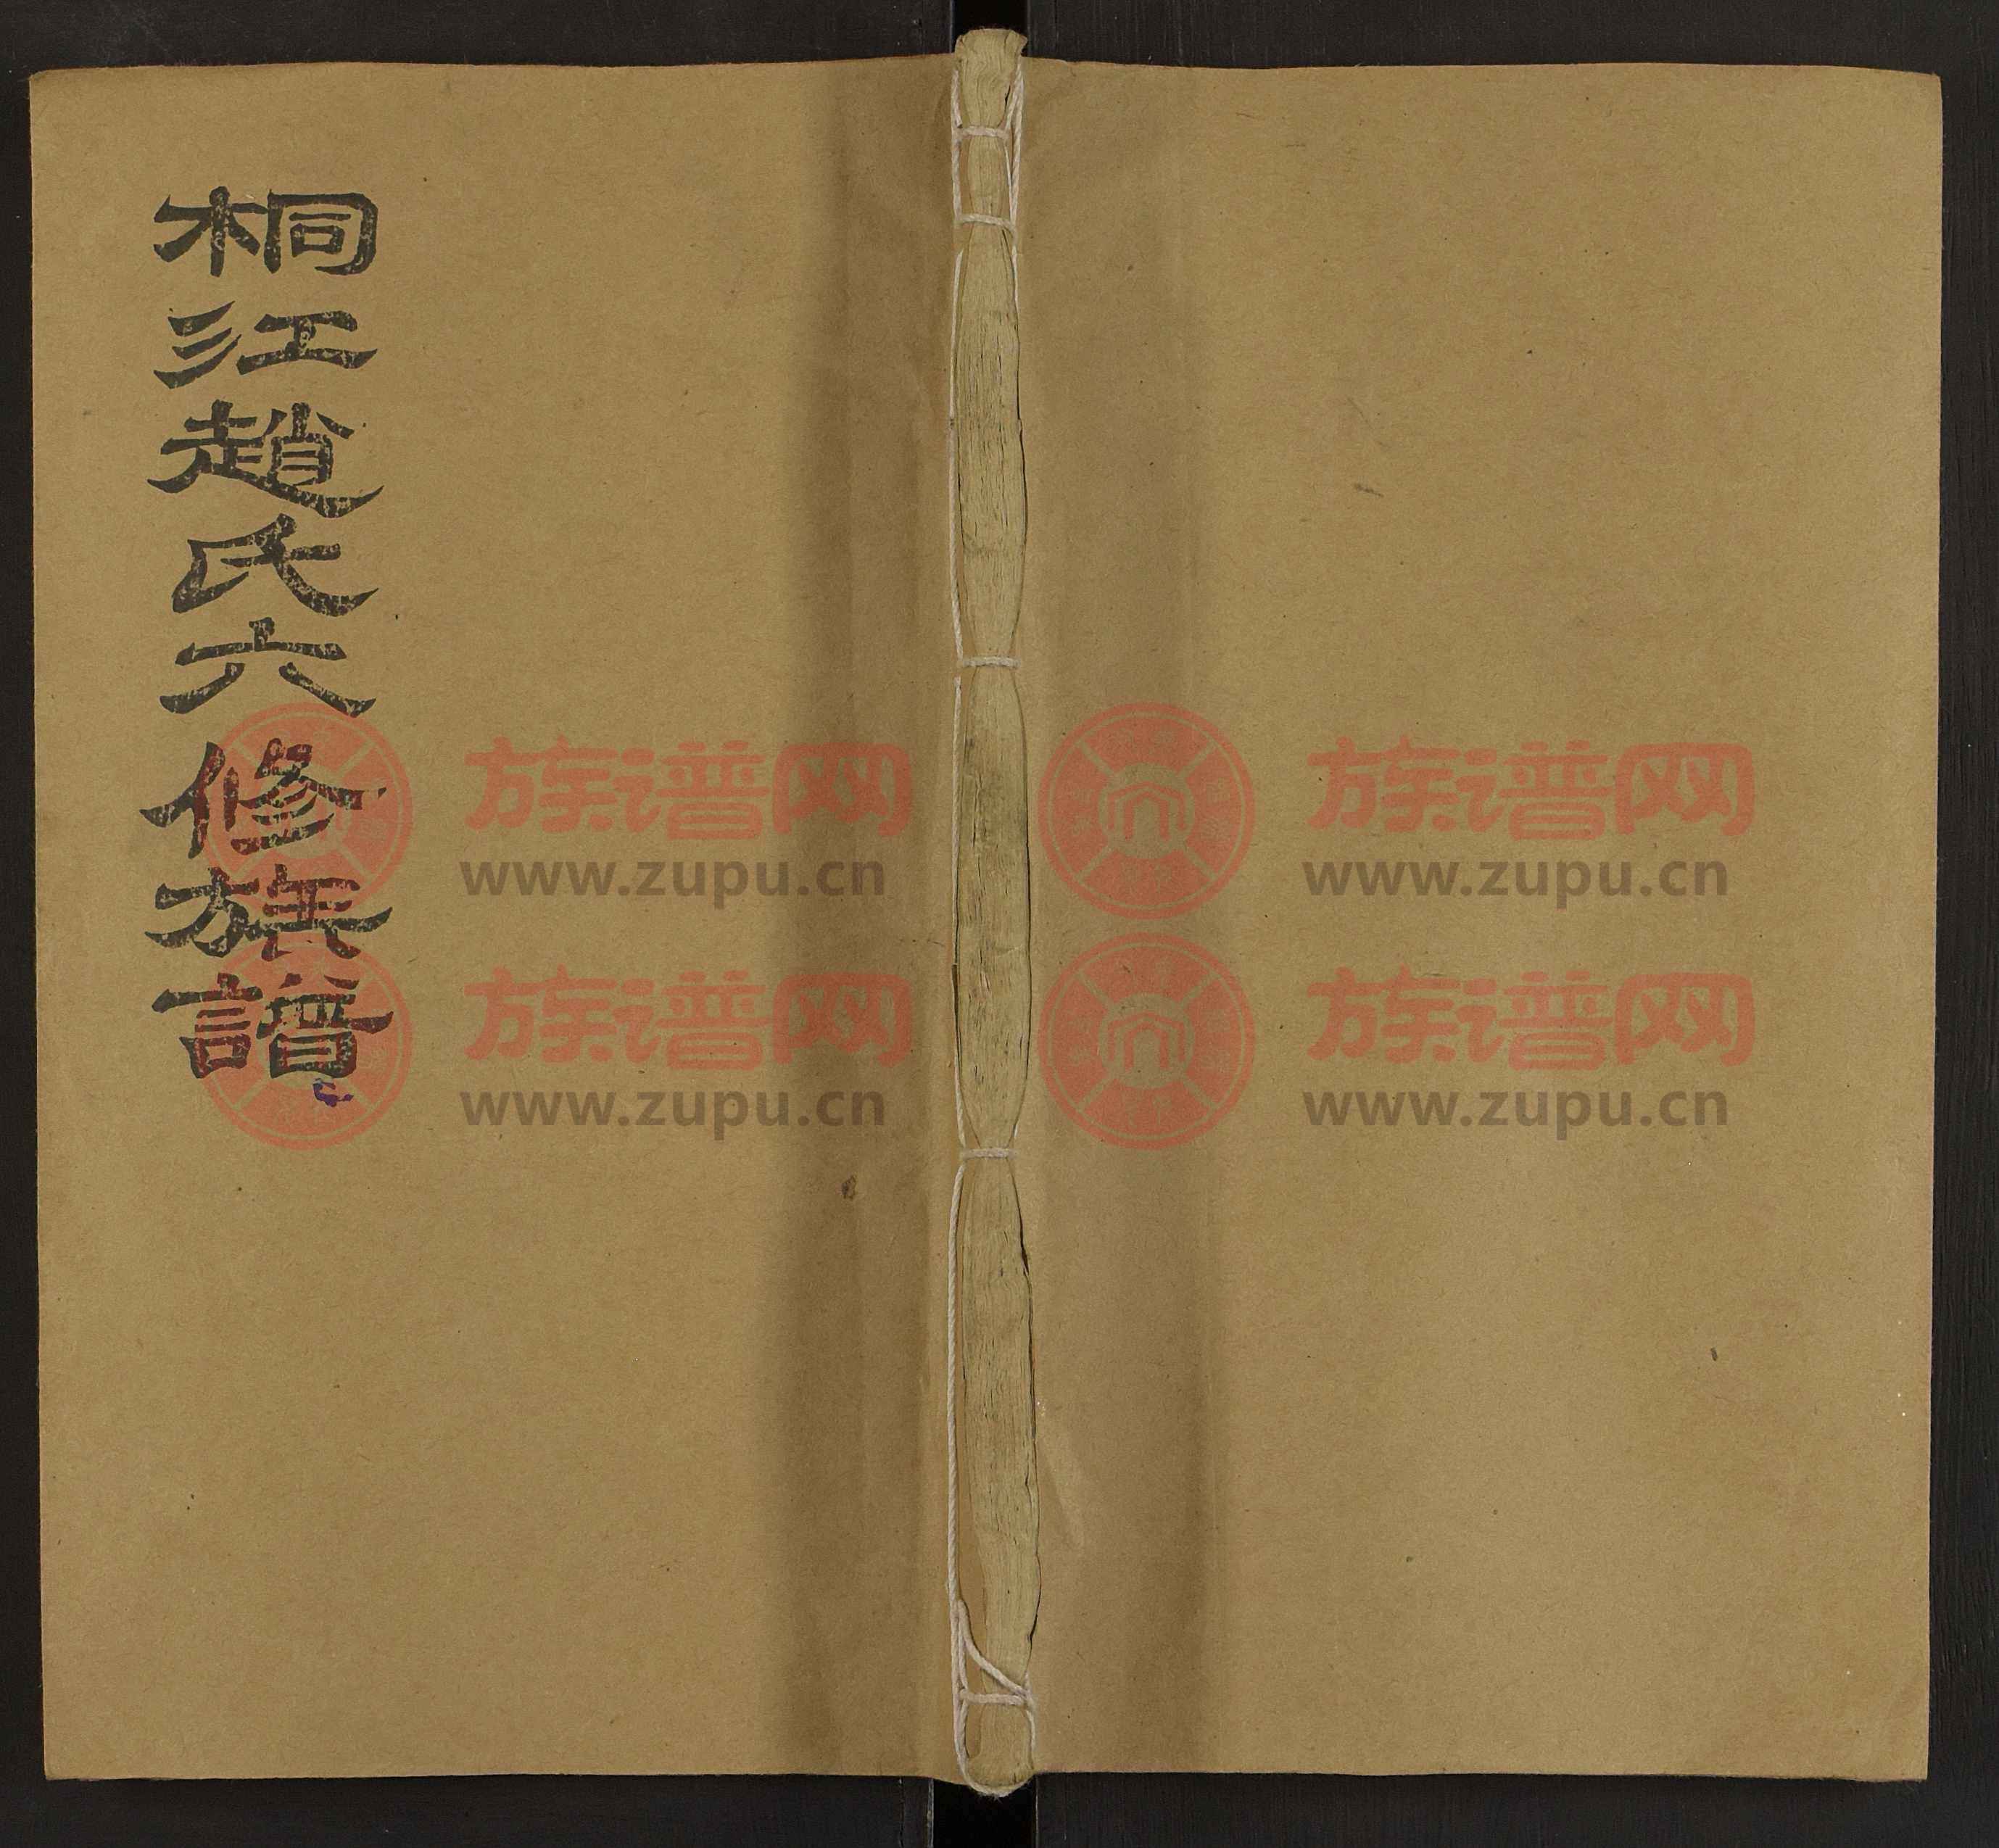 桐江趙氏六修族譜
族谱网
www.zupu.cn
族谱网
www.zupu.cn
族谱网
www.zupu.cn
族谱网
www.zupu.cn